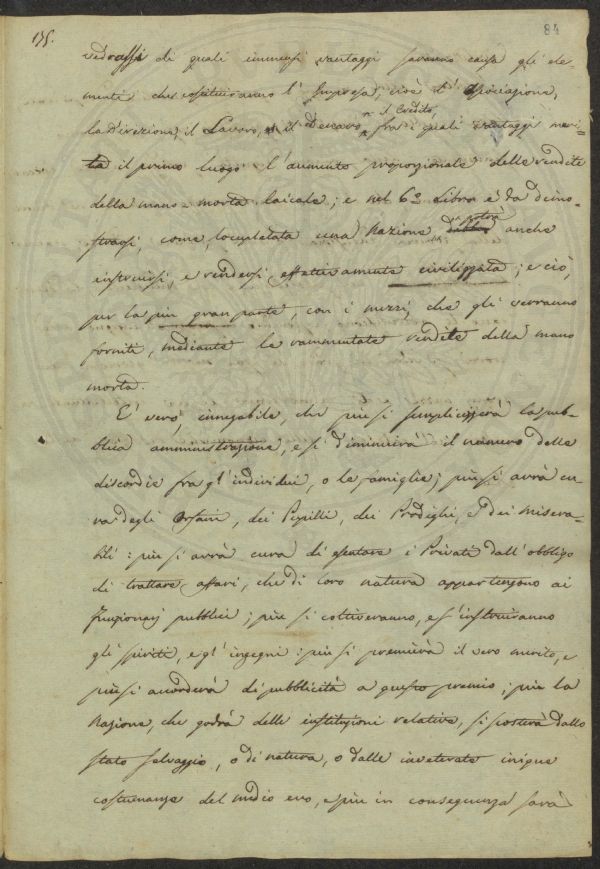 135.
84
vedrassi di quali immensi vantaggi saranno causa gli ele-
menti che costituiranno l'Impresa, cioè l'Associazione,
il Credito,
la Direzione, il Lavoro, il Denaro fra i quali vantaggi meri-
ta il primo luogo l'aumento proporzionale delle rendite
della mano-morta laicale; e nel 6º Libro è da dimo-
strarsi, come, locupletata una Nazione potrà anche
instruirsi, e rendersi effettivamente civilizzata; e ciò,
per la più gran parte, con i mezzi, che gli verranno
forniti, mediante le rammentate rendite della mano
morta.
È vero, innegabile, che più si semplicizzerà la pub-
blica amministrazione, e si diminuirà il numero delle
discordie fra gl'individui, o le famiglie; più si avrà cu-
ra degli Orfani, dei Pupilli, dei Prodighi, e dei misera-
bili: più si avrà cura di esentare i Privati dall'obbligo
di trattare affari, che di loro natura appartengono ai
Funzionarj pubblici; più si coltiveranno, e s'instruiranno
gli spiriti, e gl'ingegni: più si premierà il vero merito, e
più si accorderà di pubblicità a questo premio; più la
Nazione, che godrà delle instituzioni relative, si scosterà dallo
stato selvaggio, o di natura, o dalle inveterate inique
costumanze del medio evo, e più in conseguenza sarà